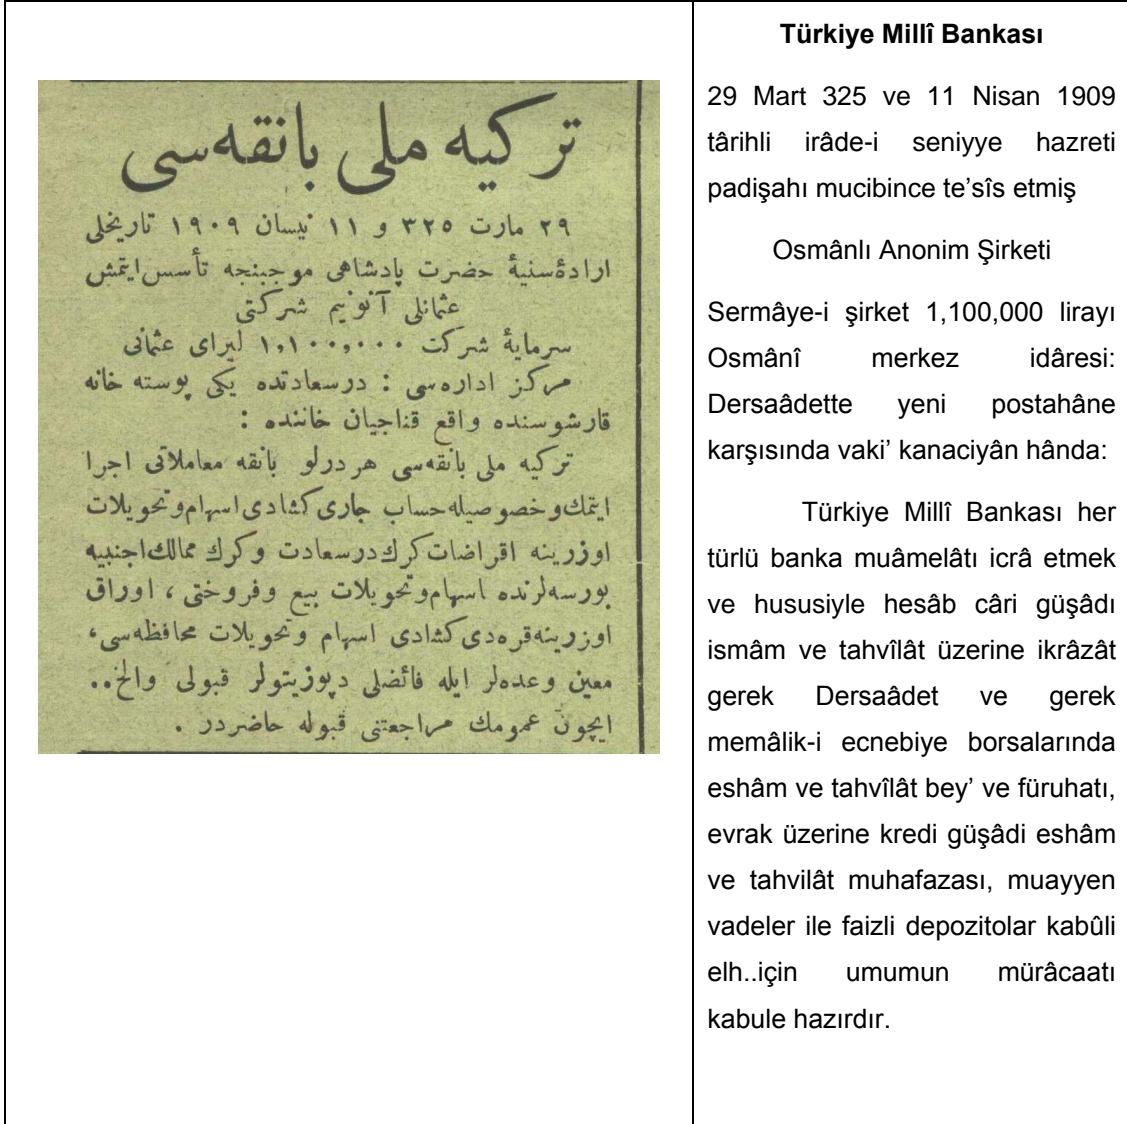 تركیه ملی بانقه‌سی
٢٩ مارت ٣٢٥ و ١١ نیسان ١٩٠٩ تاریخلی
ارادۀ سنیۀ حضرت پادشاهی موجبنجه تأسس ایتمش
عثمانلی آنونیم شركتی
سرمایۀ شركت ١,١٠٠,٠٠٠ لیرای عثمانی
مركز اداره‌سی : درسعادتده یكی پوسته خانه
قارشوسنده واقع قناجیان خاننده :
تركیه ملی بانقه‌سی هر درلو بانقه معاملاتی اجرا
ایتمك و خصوصیله حساب جاری كشادی اسهام و تحویلات
اوزرینه اقراضات كرك درسعادت و كرك ممالك اجنبیه
بورسه‌لرنده اسهام و تحویلات بیع و فروختی ، اوراق
اوزرینه قره‌دی كشادی اسهام و تحویلات محافظه‌سی،
معین وعده‌لر ایله فائضلی دپوزیتولر قبولی والخ..
ایچون عمومك مراجعتنی قبوله حاضردر .
Türkiye Millî Bankası
29 Mart 325 ve 11 Nisan 1909
târihli irâde-i seniyye hazreti
padişahı mucibince te’sîs etmiş
Osmânlı Anonim Şirketi
Sermâye-i şirket 1,100,000 lirayı
Osmânî merkez idâresi:
Dersaâdette yeni postahâne
karşısında vaki’ kanaciyân hânda:
Türkiye Millî Bankası her
türlü banka muâmelâtı icrâ etmek
ve hususiyle hesâb câri güşâdı
ismâm ve tahvîlât üzerine ikrâzât
gerek Dersaâdet ve gerek
memâlik-i ecnebiye borsalarında
eshâm ve tahvîlât bey’ ve füruhatı,
evrak üzerine kredi güşâdi eshâm
ve tahvilât muhafazası, muayyen
vadeler ile faizli depozitolar kabûli
elh..için umumun mürâcaatı
kabule hazırdır.